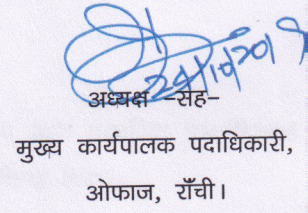 24/10/2019
अध्यक्ष –सह–
मुख्य कार्यपालक पदाधिकारी,
ओफाज, राँची।